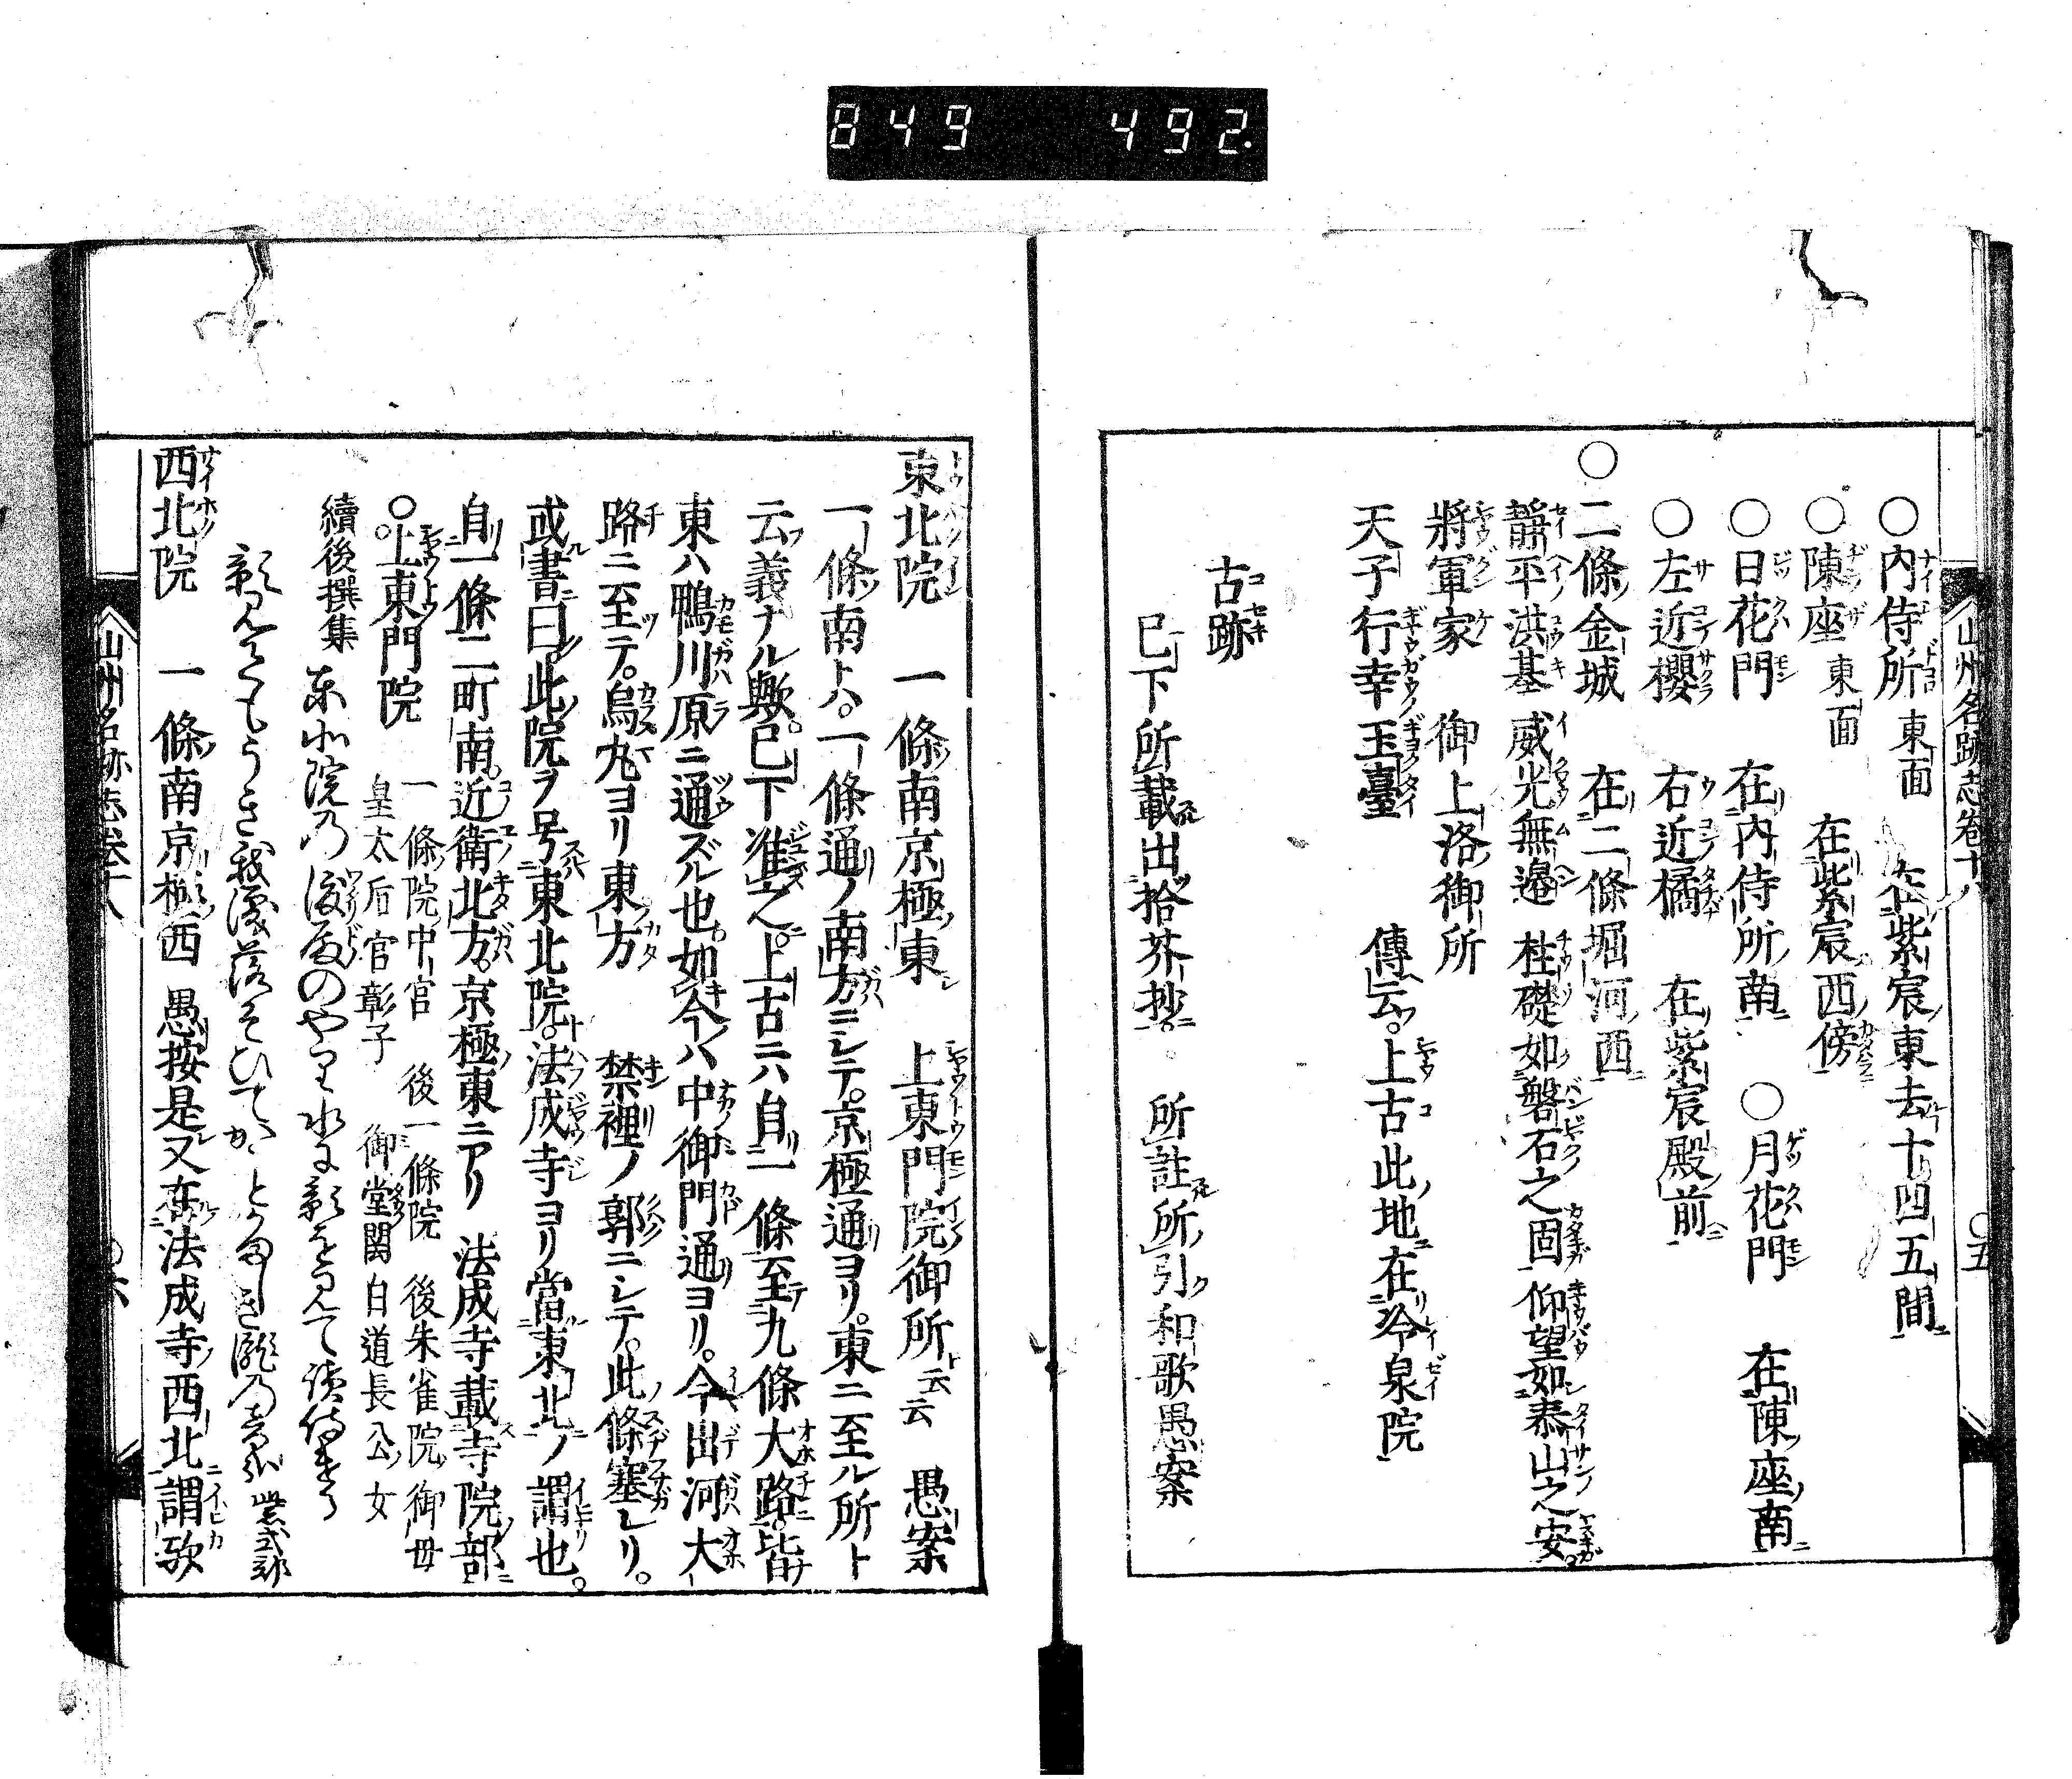 849 492.
山州名跡志卷十八 〇五
〇内侍所 東面 在紫宸東去十四五間
〇陳座 東面 在紫宸西傍
〇日花門 在内侍所南 〇月花門 在陳座南
〇左近櫻 右近橘 在紫宸殿前
〇二條金城 在二條堀河西
靜平洪基 威光無邉 柱礎如磐石之固 仰望如泰山之安
將軍家 御上洛御所
天子行幸玉臺 傳云上古此地在冷泉院
古跡
已下所載出拾芥抄 所註所引和歌愚案
東北院 一條南京極東 上東門院御所云云 愚案
一條南トハ。一條通ノ南方ニシテ。京極通ヨリ。東ニ至ル所ト
云義ナル歟。已下准之。上古ニハ自一條至九條大路。皆
東ハ鴨川原ニ通ズル也。如今ハ中御門通ヨリ。今出河大
路ニ至テ。烏丸ヨリ東方 禁裡ノ郭ニシテ。此條塞レリ。
或書曰。此院ヲ号東北院。法成寺ヨリ當東北ノ謂也。
自一條二町南。近衛北方。京極東ニアリ 法成寺載寺院部
〇上東門院 一條院中宮 後一條院 後朱雀院御母
皇太后宮彰子 御堂関白道長公女
續後撰集 東北院の渡殿のやり水に影を見て読侍ける
影見てもうき我涙落そひてかことかましき瀧の音哉 紫式部
西北院 一條南京極西 愚按是又在法成寺西北謂歟
山州名跡志卷十八 〇六